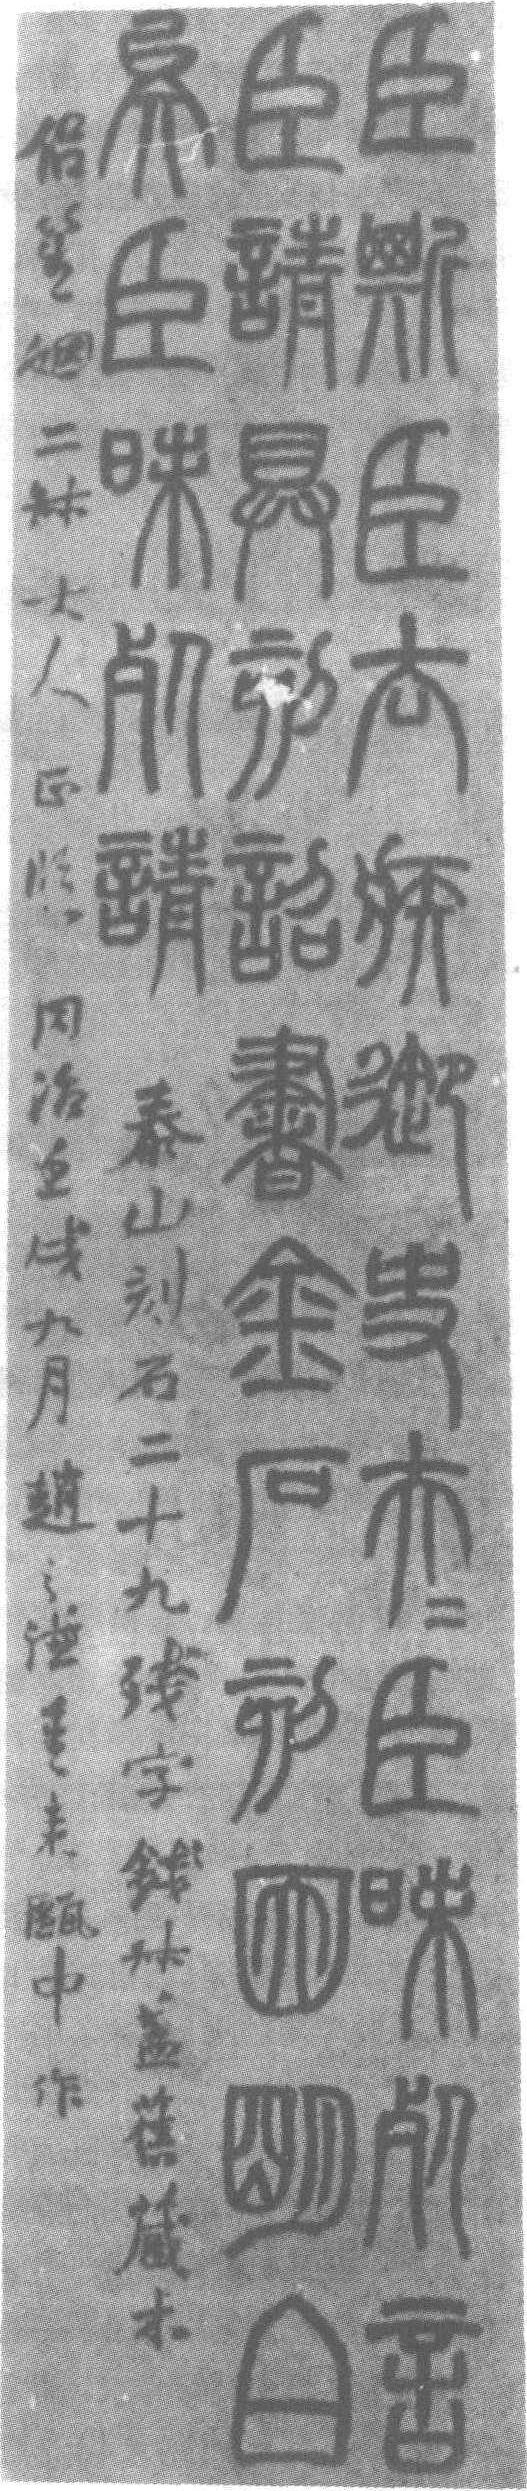 臣斯臣去疾御史夫二臣昧死言
臣請具刻詔書金石刻因明白
矣臣昧死請 泰山刻石二十九殘字錢叔蓋舊藏本
二叔大人正 同治壬戌九月趙之謙重來甌中作